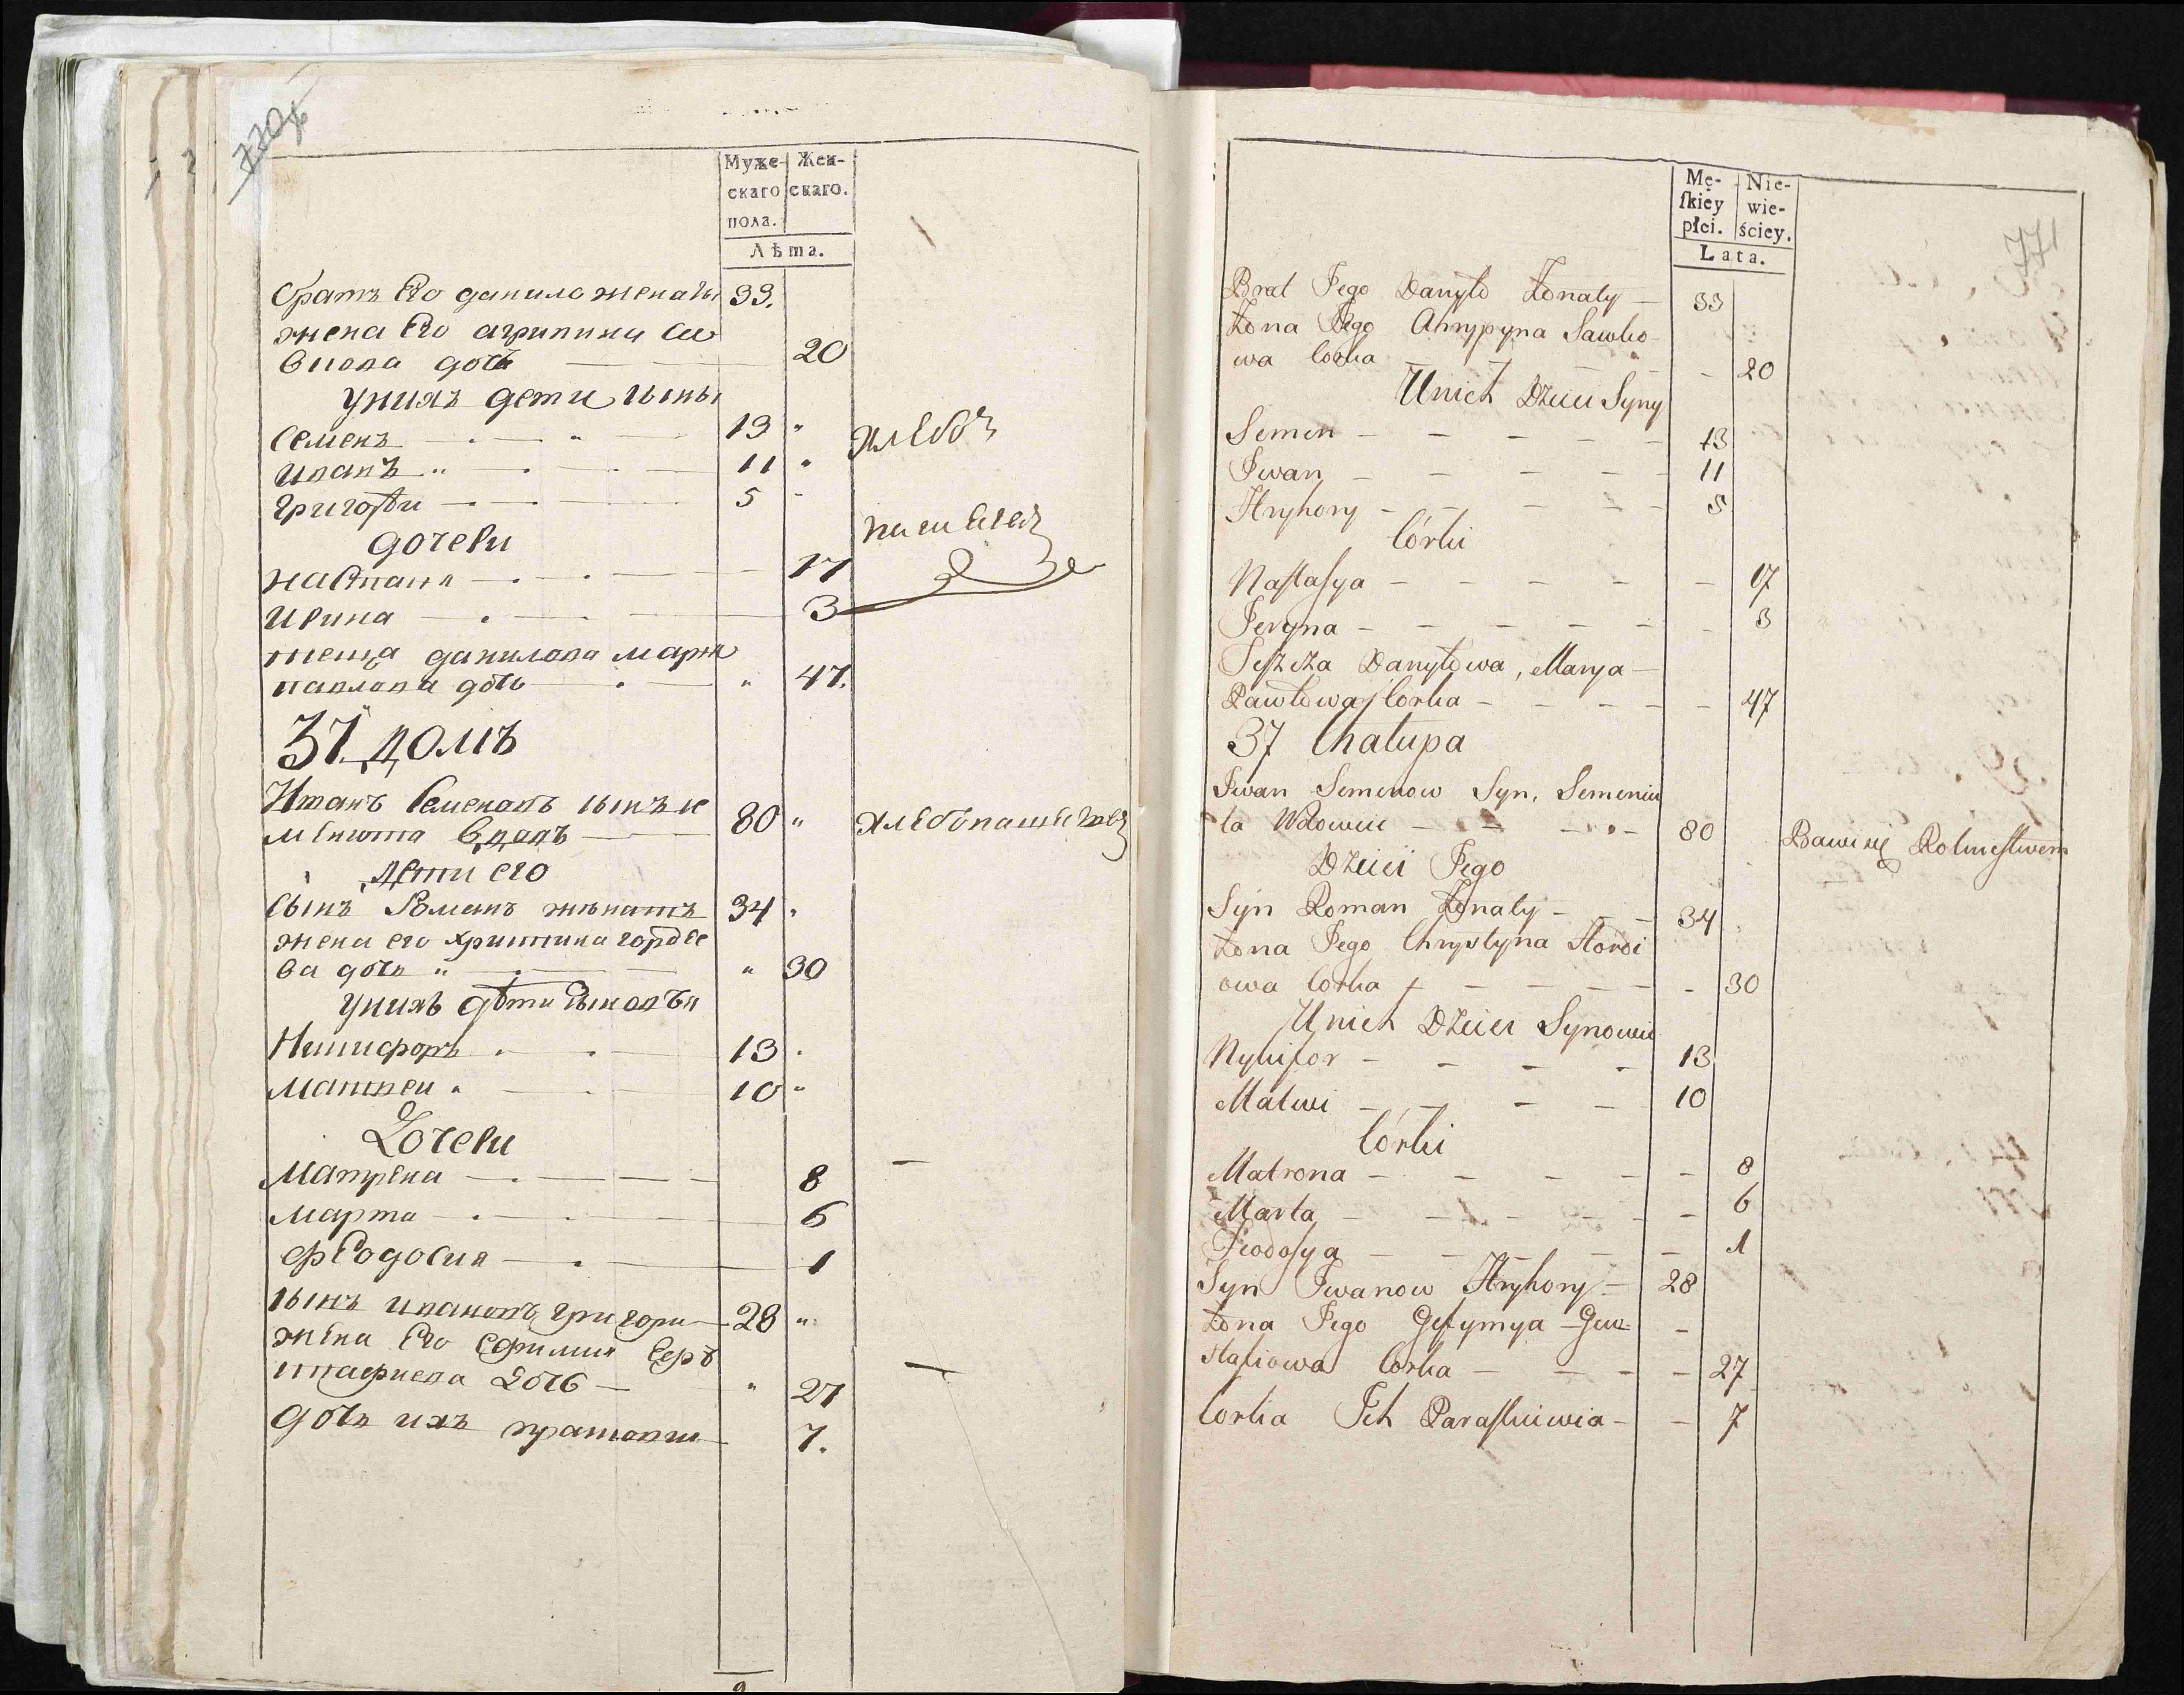 770
Муже-
скаго
пола.
Жен-
скаго.
Лѣта.
братъ Его данило женаты 33.
жена Его агрипина са
вчова дочь — 20
Униҳъ дети сыны
Семенъ — 13 "
Иванъ " — 11 " хлебо
Григорѣи — 5 "
дочери пашЕцъ
настаня — 17
Ирина — 3
теща данилова мария
павлова дочь — " 47.
37. домъ
Иванъ Семеновъ сынъ се
менюта вдовъ — 80 " хлебопашецъ
дети его
сынъ Романъ женатъ 34 "
жена его христина горде
ва дочь " — " 30
униҳъ дѣти сыновья
Никифоръ — 13 "
Матвеи " — 10 "
Дочери
Матрена — 8
Марта — 6
Феодосия — 1
сынъ ивановъ григори — 28 "
жена Его Ефимия Евъ
стафиева дочь — " 27
дочь ихъ
7.
771
Mę-
ſkiey
płci.
Nie-
wie-
ściey.
Lata.
Brat Jego Danyło Żonaty — 33
Żona Jego Ahrypyna Sawko-
wa Corka — 20
Unich Dzieci Syny
Semen — 13
Iwan — 11
Hryhory — 5
Córki
Naſtaſya — 17
Jeryna — 3
Teſzcza Danyłowa, Marya —
Pawłowa Corka — 47
37 Chałupa
Iwan Semenow Syn, Semeniu
ta Wdowiec — 80 Bawi się Rolnictwem
Dzieci Jego
Syn Roman Żonaty — 34
Żona Jego Chrystyna Hordi
owa Corka — 30
Unich Dzieci Synowie
Nykifor — 13
Matwi — 10
Córki
Matrona — 8
Marta — 6
Fiodoſya — 1
Syn Iwanow Hryhory — 28
Żona Jego Jefymya Jew-
stafiowa Corka — 27
Corka Ich Paraſkiewia — 7